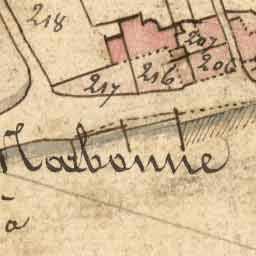 218
207
217 216 206
Narbonne
à